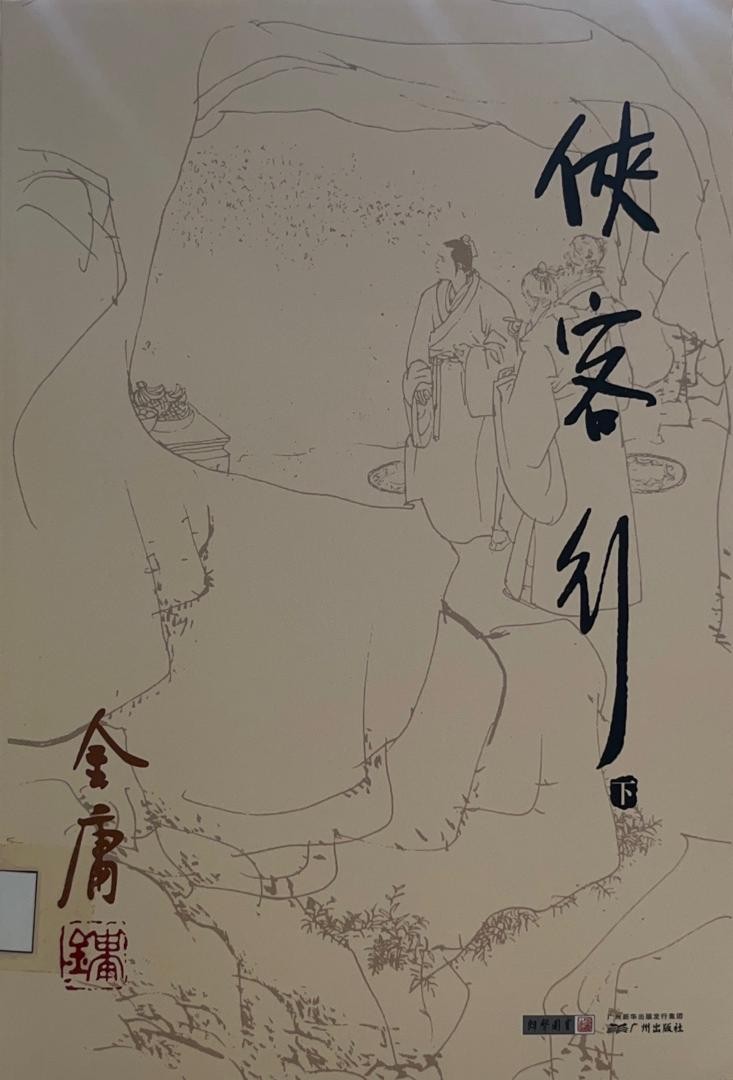 俠客行
下
金庸
朗聲圖書
广州新华出版发行集团
广州出版社